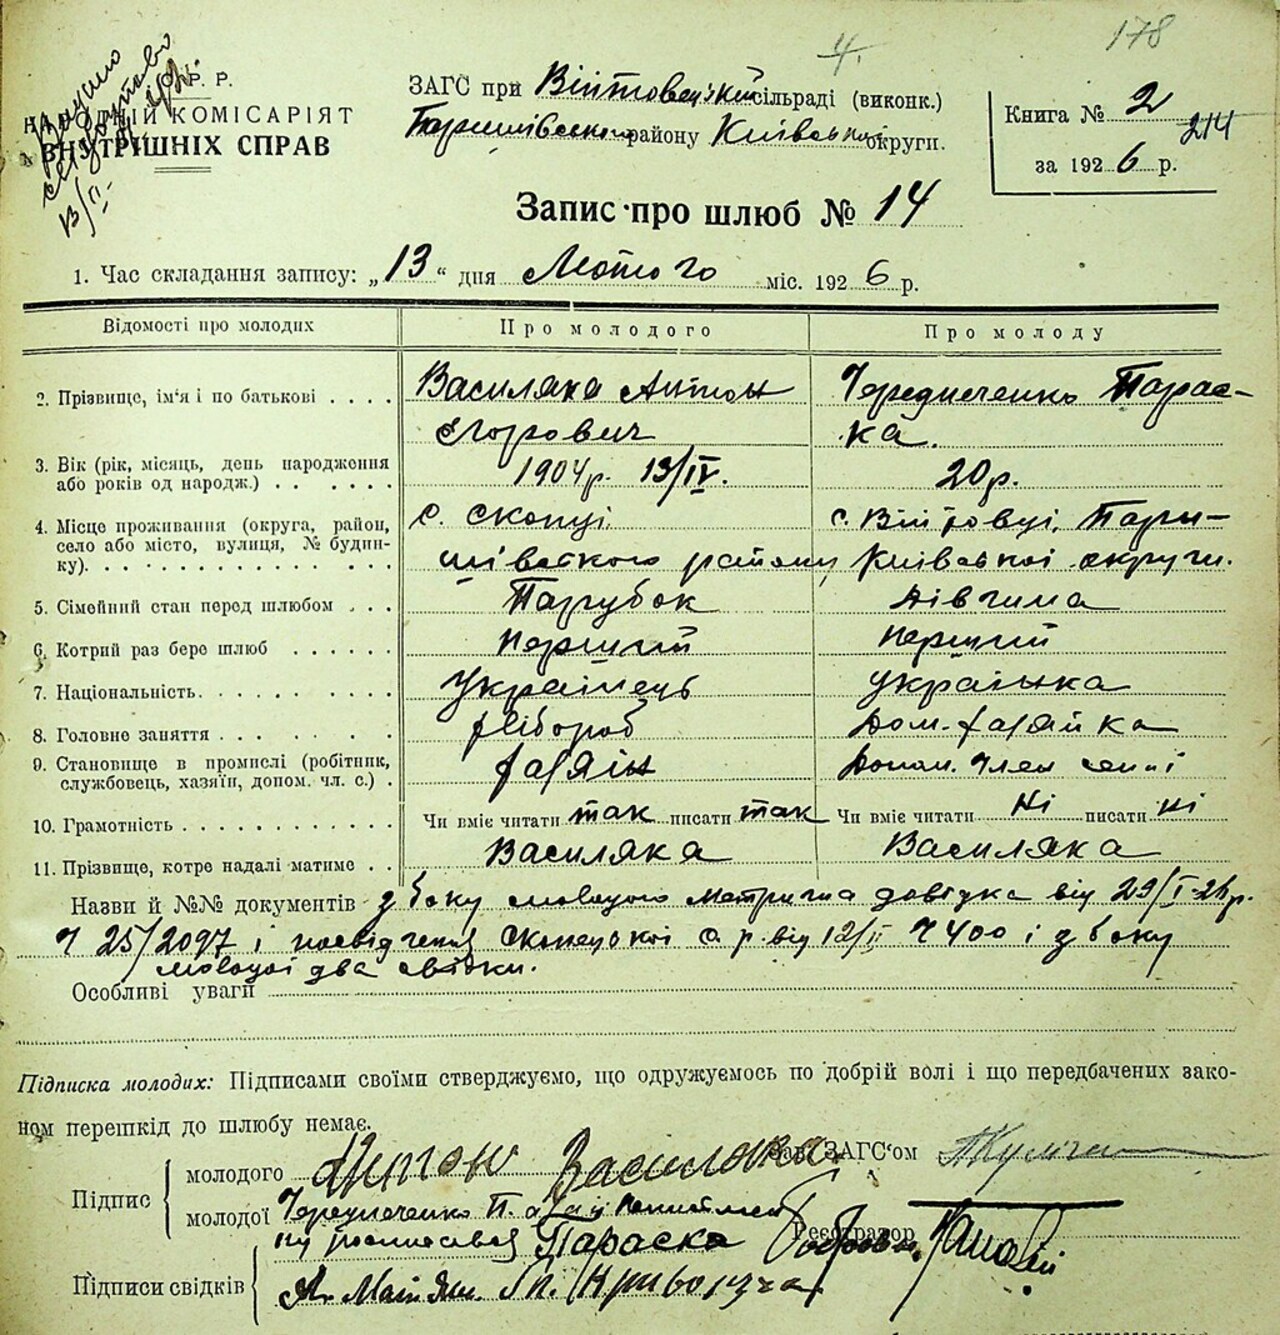 4.
178
С.Р.Р.
НАРОДНІЙ КОМІСАРІЯТ
ВНУТРІШНІХ СПРАВ
ЗАГС при Війтовецькій сільраді (виконк.)
Баришівському району Київської округи.
Книга № 2
214
за 1926 р.
Запис про шлюб № 14
1. Час складання запису: „13“ дня Лютого міс. 1926 р.
Відомості про молодих Про молодого Про молоду
2. Прізвище, ім'я і по батькові Василяка Антон Чередниченко Парас-
Єгорович ка.
3. Вік (рік, місяць, день народження 1904 р. 13/IV. 20 р.
або років од народж.)
4. Місце проживання (округа, район, с. Скопці с. Війтовці, Бари-
село або місто, вулиця, № будин- шівського району Київської округи.
ку)
5. Сімейний стан перед шлюбом Парубок Дівчина
6. Котрий раз бере шлюб перший перший
7. Національність Українець українка
8. Головне заняття хлібороб Дом. хазяйка
9. Становище в промислі (робітник, хазяїн Допом. член семї
службовець, хазяїн, допом. чл. с.)
10. Грамотність Чи вміє читати так писати так Чи вміє читати Ні писати ні
11. Прізвище, котре надалі матиме Василяка Василяка
Назви й №№ документів з боку молодого метрична довідка від 29/I-26 р.
Ч 25/2097 і посвідчення Скопецької с. р. від 12/II Ч 400 і з боку
молодої два свідки.
Особливі уваги
Підписка молодих: Підписами своїми стверджуємо, що одружуємось по добрій волі і що передбачених зако-
ном перешкід до шлюбу немає.
Зав. ЗАГС'ом
Підпис
молодого Антон Василяка
молодої Чередниченко П. а за її
Реєстратор
Параска
Підписи свідків